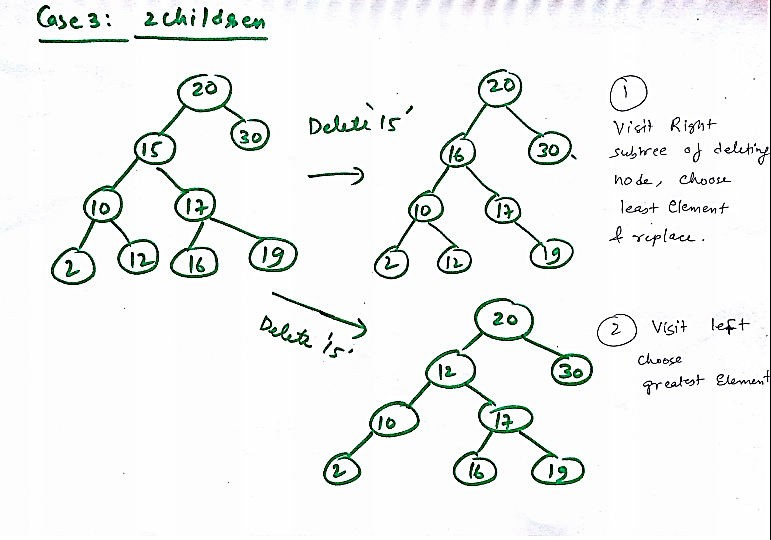 Case 3: 2 children
20
15
30
10
17
2
12
16
19
Delete '15'
20
16
30
10
17
2
12
19
1
Visit Right
subtree of deleting
node, choose
least Element
& replace.
Delete '15'
20
12
30
10
17
2
16
19
2 Visit left
choose
greatest Element